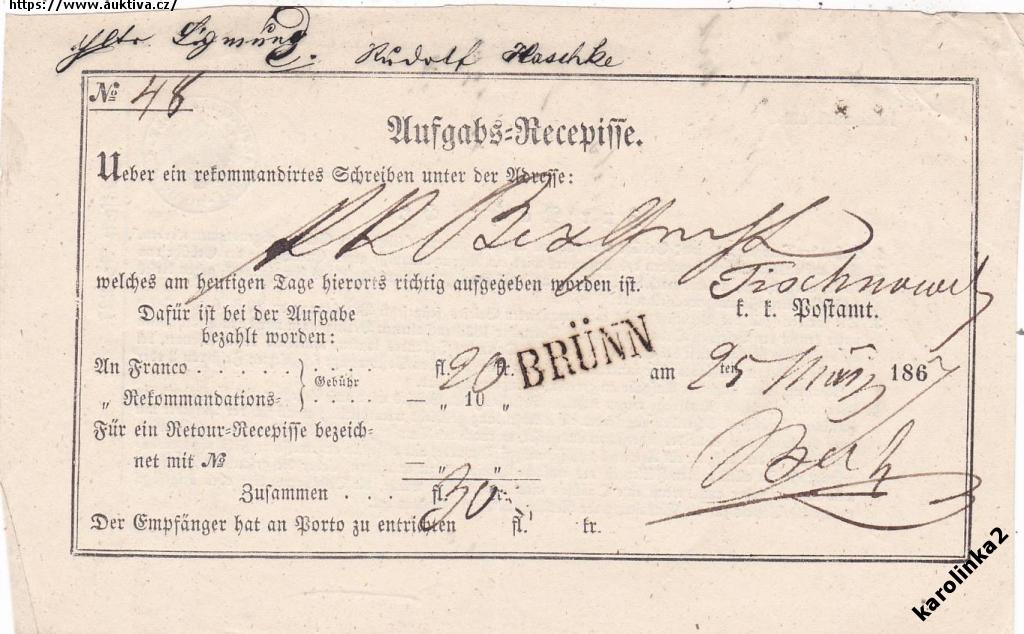 https://www.auktiva.cz/
Sigmund. Rudolf Haschke
No 48
Aufgabs-Recepisse.
Ueber ein rekommandirtes Schreiben unter der Adresse:
Tischnowitz
welches am heutigen Tage hierorts richtig aufgegeben worden ist.
k. k. Postamt.
Dafür ist bei der Aufgabe
bezahlt worden:
BRÜNN
An Franco . . . . . . . . . . fl. 20 kr.
Gebühr
am 25 ten März 1867
„ Rekommandations- — „ 10 „
Für ein Retour-Recepisse bezeich-
net mit No — „ „
Zusammen . . . . fl. 30 kr.
Der Empfänger hat an Porto zu entrichten fl. kr.
karolinka2